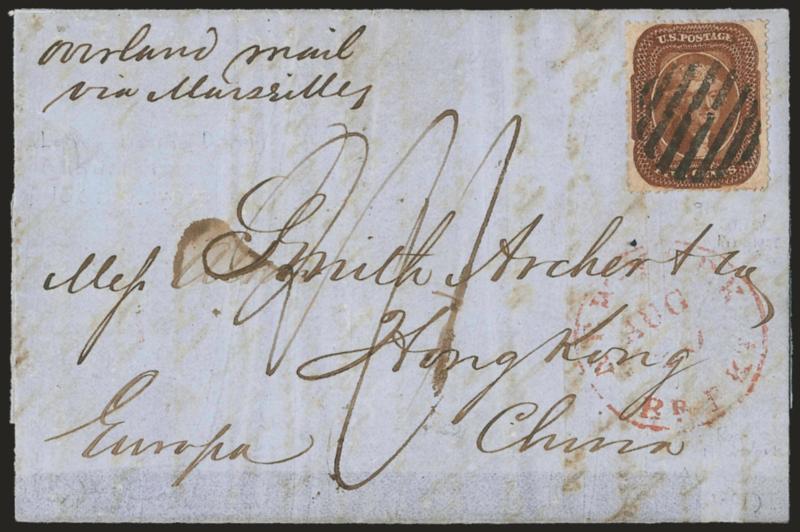 overland mail
via Marseilles
U.S. POSTAGE
Mess Smith Archer & Co
Hong Kong
Europa China
AUG